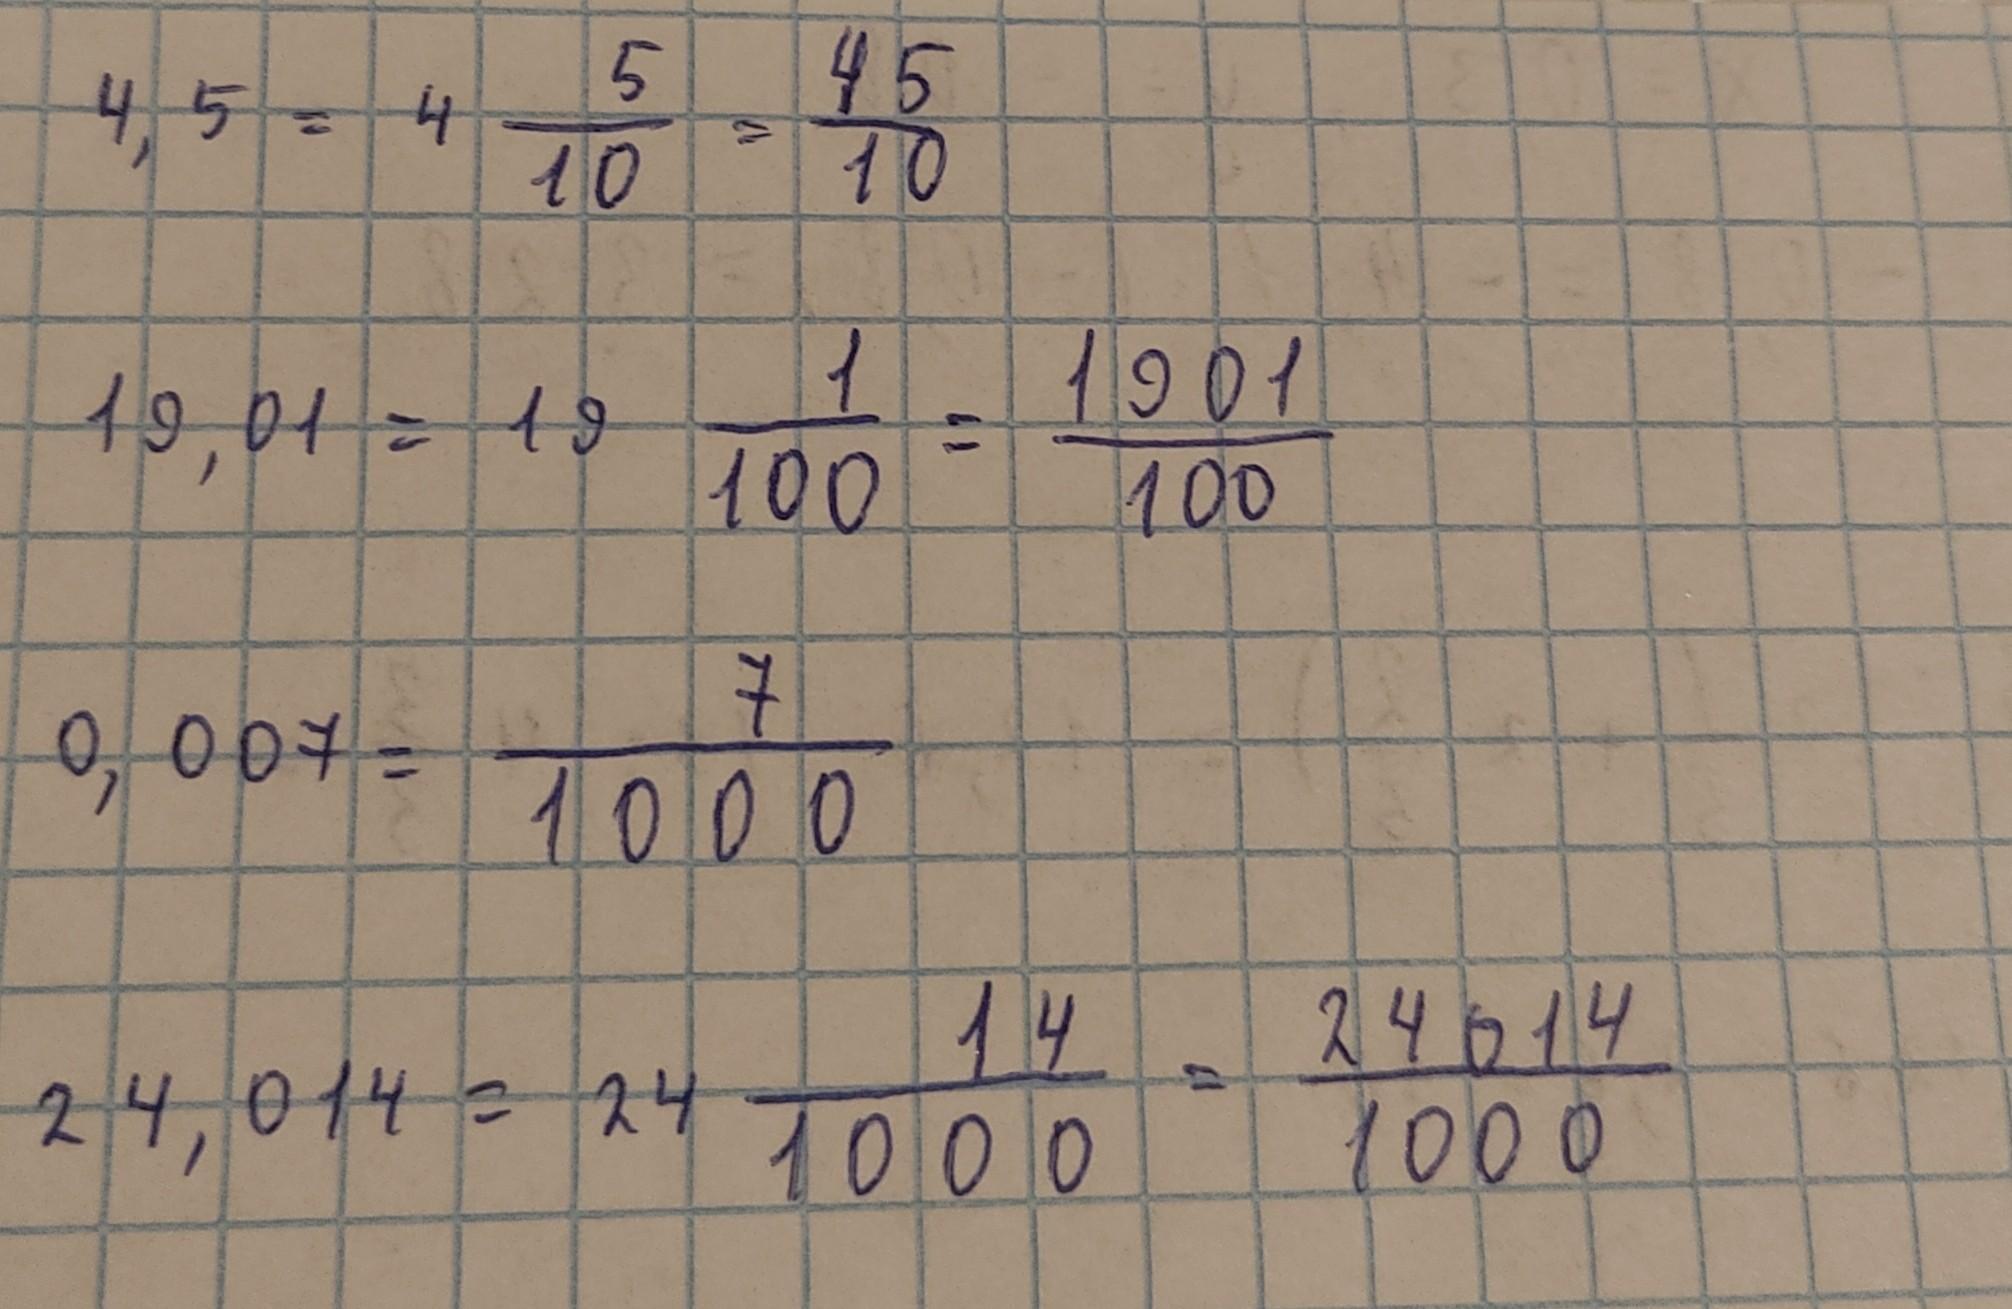 4,5 = 4 5/10 = 45/10
19,01 = 19 1/100 = 1901/100
0,007 = 7/1000
24,014 = 24 14/1000 = 24014/1000